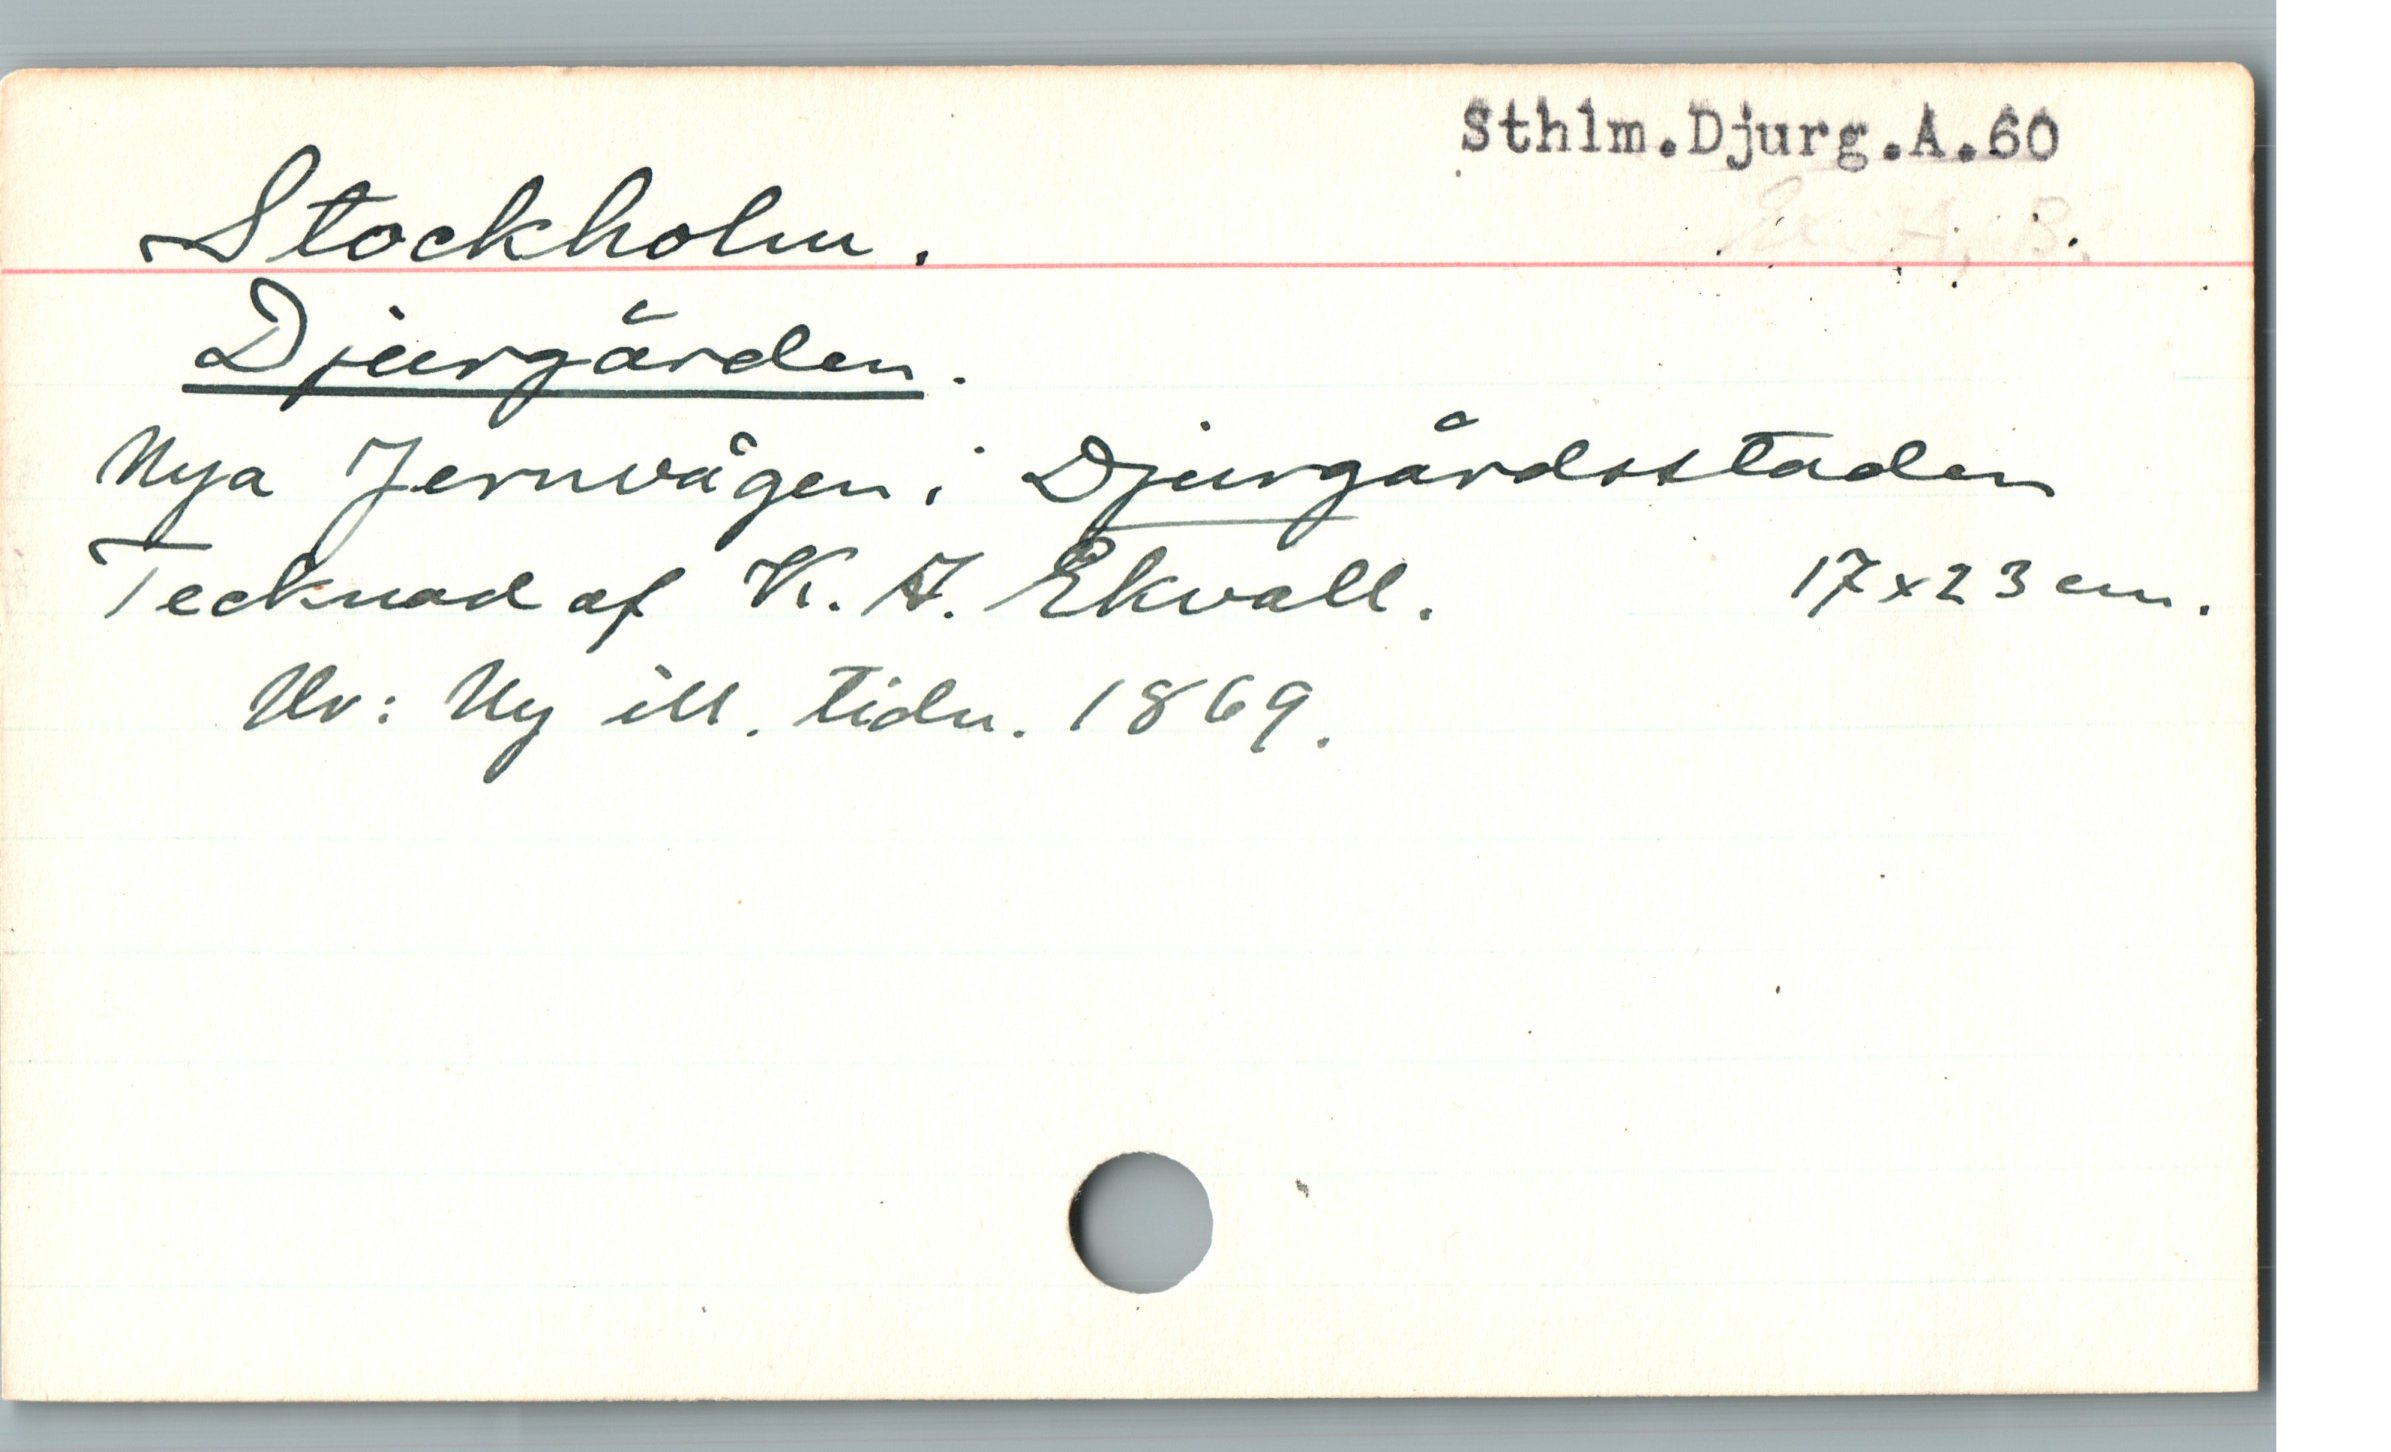 Sthlm.Djurg.A.60
Ex. A, B.
Stockholm.
Djurgården.
Nya Jernvägen i Djurgårdsstaden
Tecknad af K. A. Ekvall. 17x23 cm.
Ur: Ny ill. tidn. 1869.